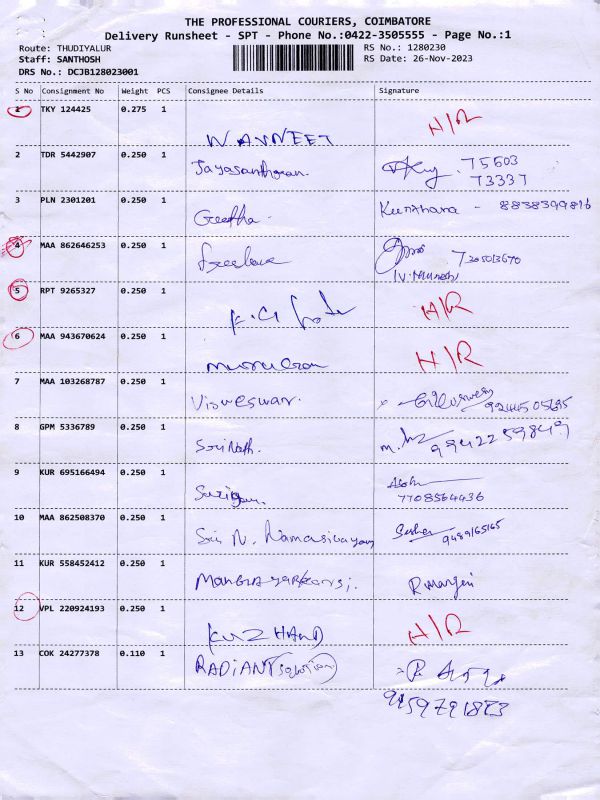 THE PROFESSIONAL COURIERS, COIMBATORE
Delivery Runsheet - SPT - Phone No.:0422-3505555 - Page No.:1
Route: THUDIYALUR RS No.: 1280230
Staff: SANTHOSH RS Date: 26-Nov-2023
DRS No.: DCJB128023001
S No Consignment No Weight PCS Consignee Details Signature
1 TKY 124425 0.275 1 H/R
2 TDR 5442907 0.250 1 Jayasanthosan. 75603
73337
3 PLN 2301201 0.250 1 Geetha. 8838399816
4 MAA 862646253 0.250 1
5 RPT 9265327 0.250 1 H/R
6 MAA 943670624 0.250 1 H/R
7 MAA 103268787 0.250 1 Visweswar.
8 GPM 5336789 0.250 1 Sri Nath. 9942259849
9 KUR 695166494 0.250 1
7708564436
10 MAA 862508370 0.250 1 Sri N. Namasivayam 9489165165
11 KUR 558452412 0.250 1
12 VPL 220924193 0.250 1 H/R
13 COK 24277378 0.110 1 RADIANT (solution)